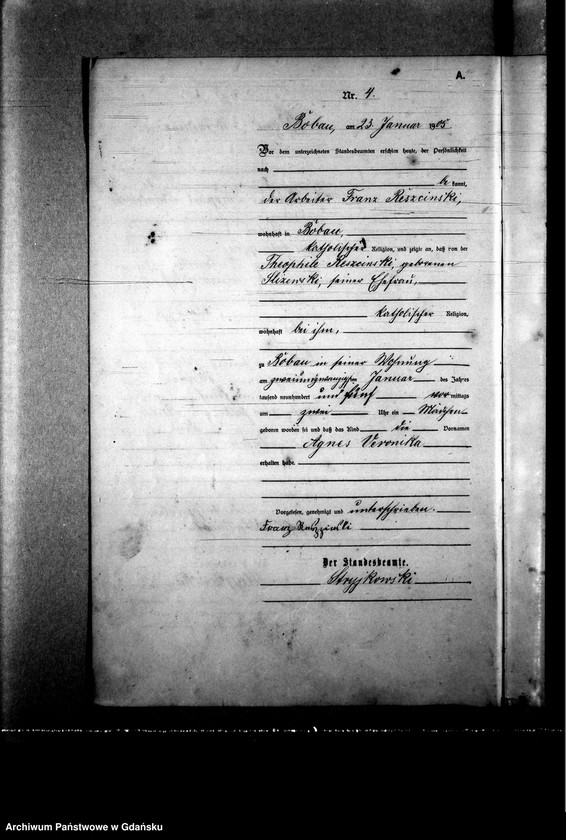 A.
Nr. 4.
Bobau, am 23. Januar 1905
Vor dem unterzeichneten Standesbeamten erschien heute, der Persönlichkeit
nach
be kannt,
der Arbeiter Franz Reszcinski,
wohnhaft in Bobau,
katholischer Religion, und zeigte an, daß von der
Theophile Reszcinski, geborenen
Slizewski, seiner Ehefrau,
katholischer Religion,
wohnhaft bei ihm,
zu Bobau in seiner Wohnung
am zweiundzwanzigsten Januar des Jahres
tausend neunhundert und fünf vor mittags
um zwei Uhr ein Mädchen
geboren worden sei und daß das Kind die Vornamen
Agnes Veronika
erhalten habe.
Vorgelesen, genehmigt und unterschrieben.
Franz
Der Standesbeamte.
Stryjkowski
Archiwum Państwowe w Gdańsku